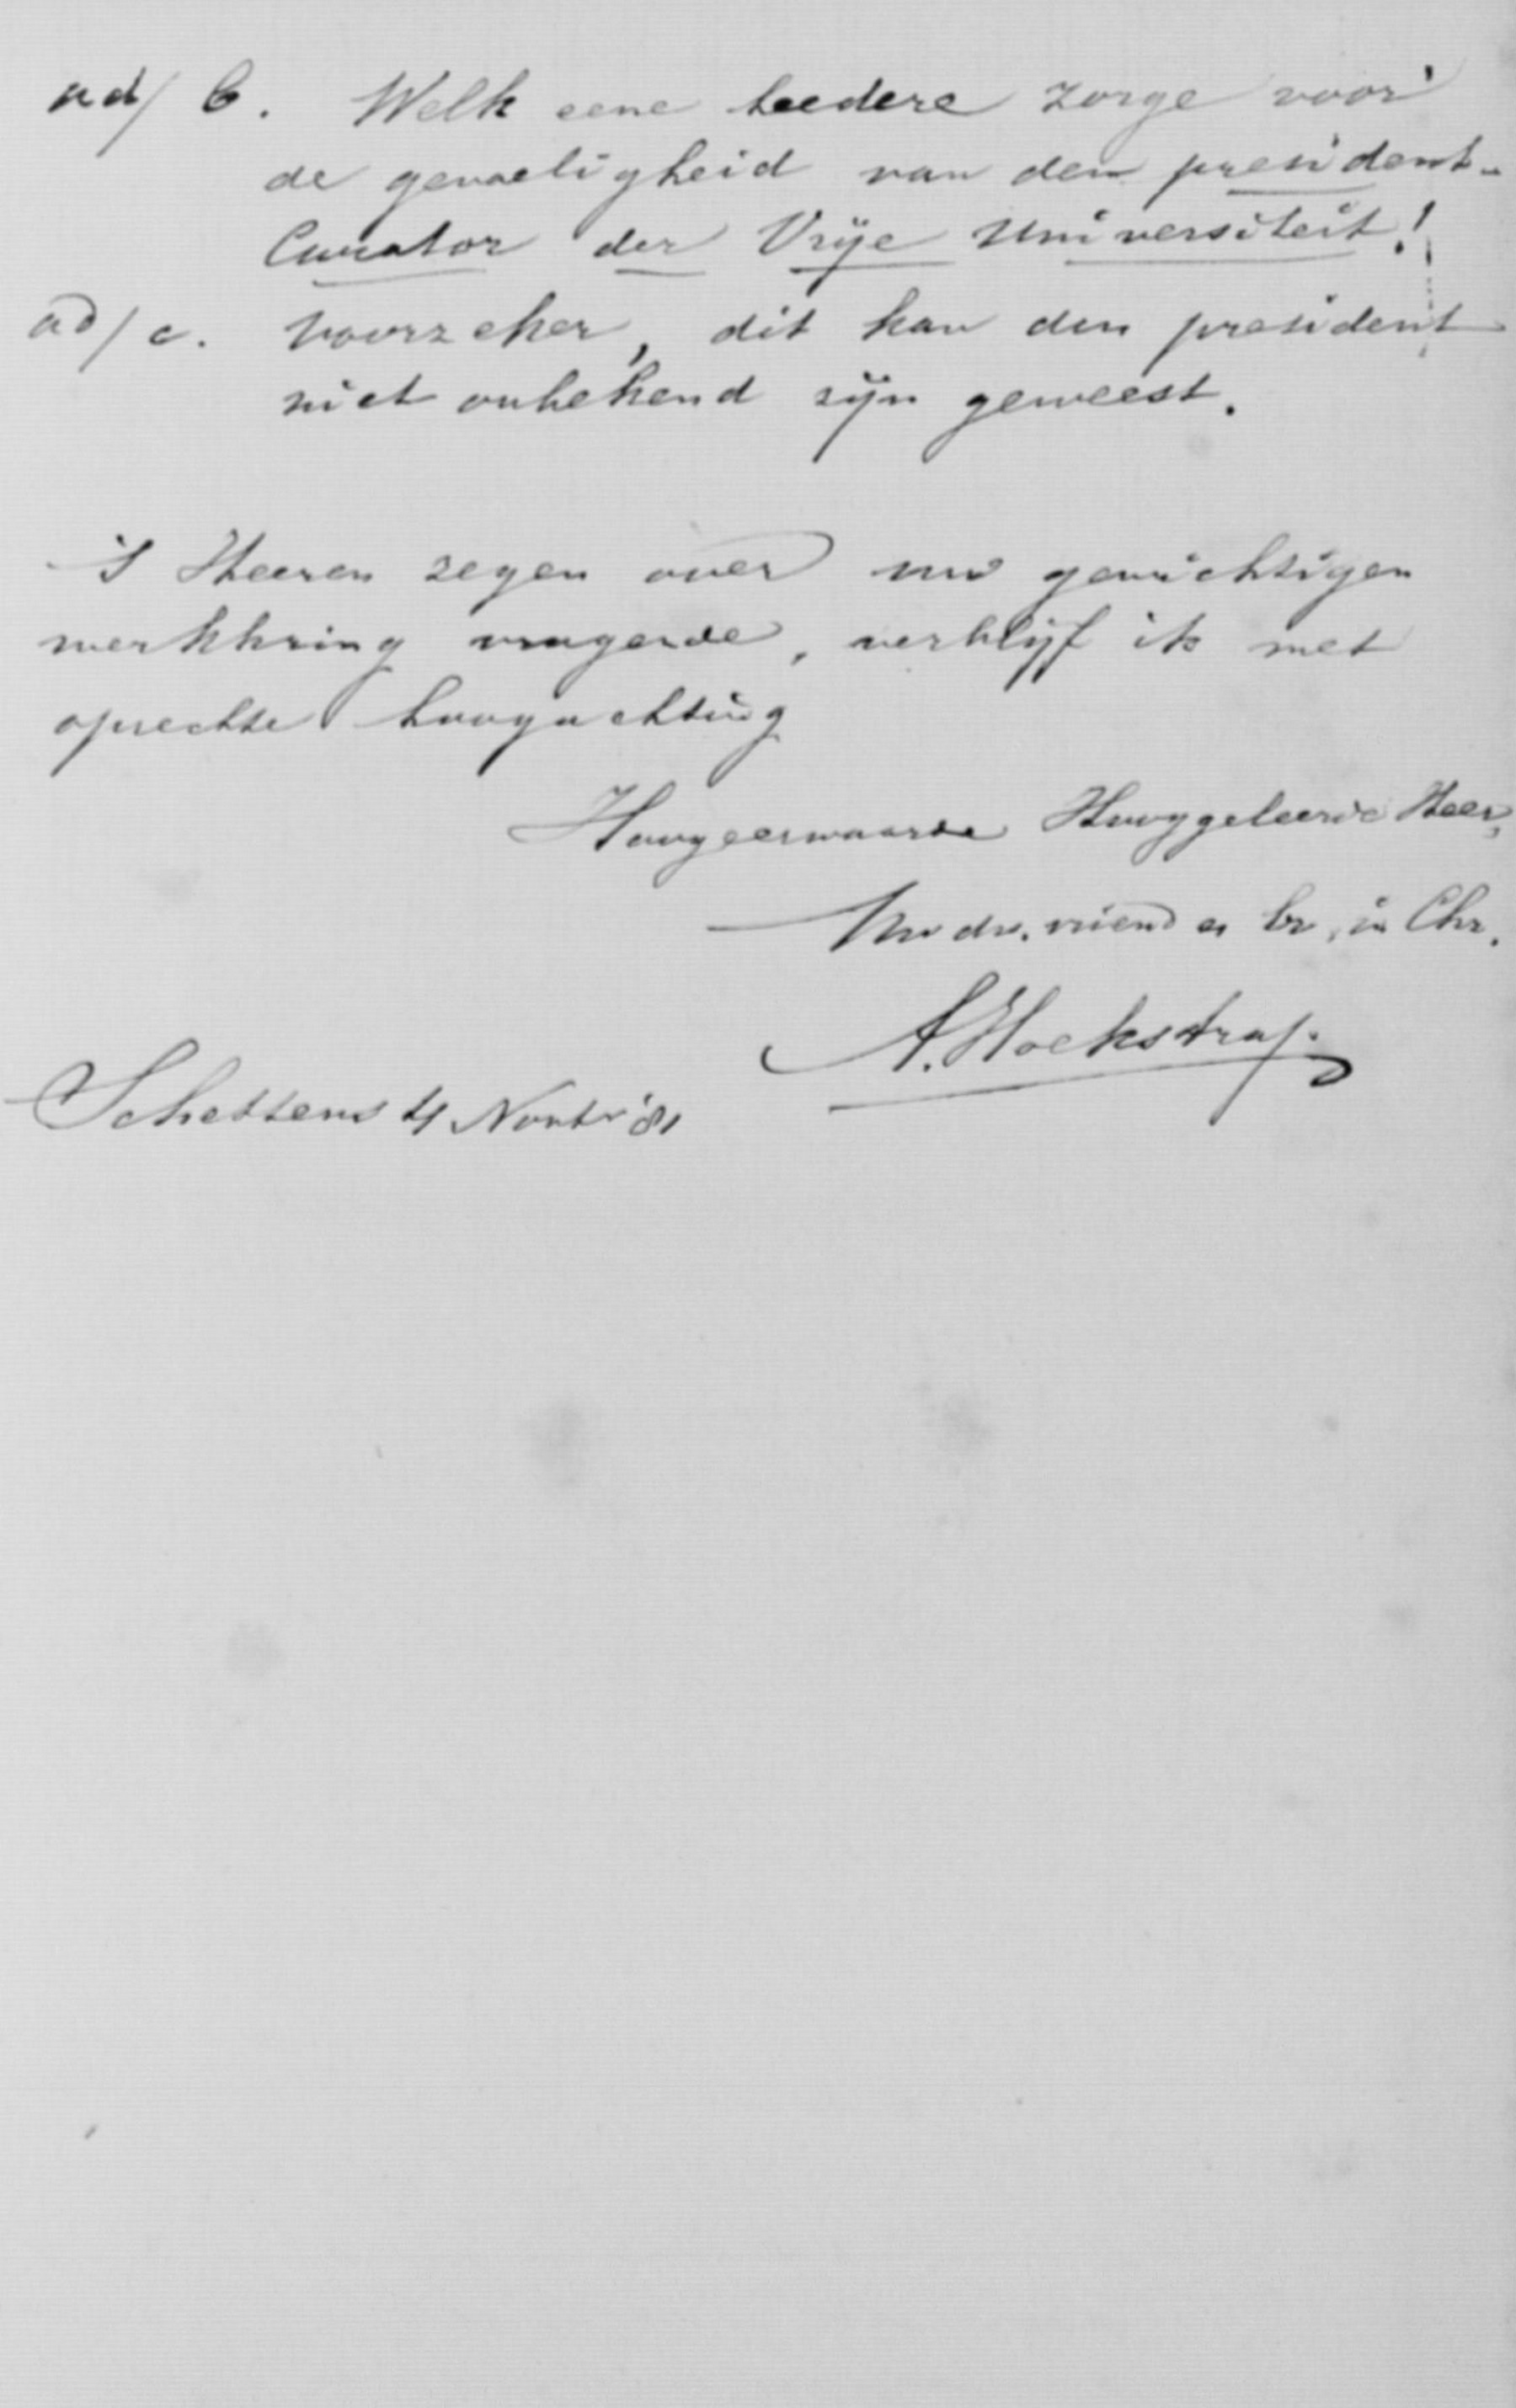 ad/ b. Welk eene teedere zorge voor
de gevoeligheid van den president-
Curator der Vrije Universiteit!
ad/ c. Voorzeker, dit kan den president
niet onbekend zijn geweest.
's Heeren zegen over uw gewichtigen
werkkring vragende, verblijf ik met
oprechte hoogachting
Hoogeerwaarde Hooggeleerde Heer,
Uw dw. vriend en br. in Chr.
A. Hoekstra
Schettens 4 Novbr '81